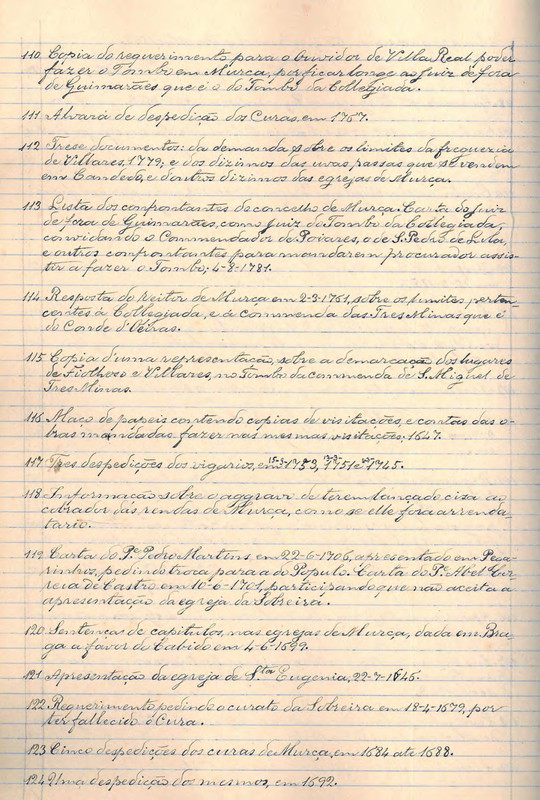 110 Copia do requerimento para o Ouvidor de Villa Real poder
fazer o Tombo em Murça, por ficar longe ao Juiz de fora
de Guimarães que é o do Tombo da Collegiada.
111 Alvará de despedição dos Curas, em 1767.
112 Trese documentos: da demanda sobre os limites da freguezia
de Villares, 1779; e dos dizimos das uvas, passas que se vendem
em Candedo, e doutros dizimos das egrejas de Murça.
113 Lista dos confrontantes do concelho de Murça. Carta do Juiz
de fora de Guimarães, como Juiz do Tombo da Collegiada,
convidando o Commendador de Poiares, o de S. Pedro de
e outros confrontantes para mandarem procurador assis-
tir a fazer o Tombo; 4-8-1781.
114 Resposta do Reitor de Murça em 2-3-1761, sobre os limites perten-
centes á Collegiada, e á commenda das Tres Minas que é
do Conde d'Oeiras.
115 Copia d'uma representação, sobre a demarcação dos lugares
de Fiolhoso e Villares, no Tombo da commenda de S. Miguel de
Tres Minas.
116 Maço de papeis contendo copias de visitações, e contas das o-
bras mandadas fazer nas mesmas visitações; 1647.
117 Tres despedições dos vigarios, em 1753, 1751 e 1745.
118 Informação sobre o aggravo de terem lançado ciza ao
cobrador das rendas de Murça, como se elle fora arrenda-
tario.
119 Carta do Pe. Pedro Martins em 22-6-1706, apresentado em Pega-
rinhos, pedindo troca para a do Populo. Carta do Pe. Abel Cor-
reia de Castro em 10-6-1701, participando que não aceita a
apresentação da egreja da Sobreira.
120 Sentenças de capitulos, nas egrejas de Murça, dada em Bra-
ga a favor do Cabido em 4-6-1699.
121 Apresentação da egreja de Sta. Eugenia, 22-7-1645.
122 Requerimento pedindo o curato da Sobreira em 18-4-1679, por
ter fallecido o Cura.
123 Cinco despedições dos curas de Murça, em 1684 até 1688.
124 Uma despedição dos mesmos, em 1692.